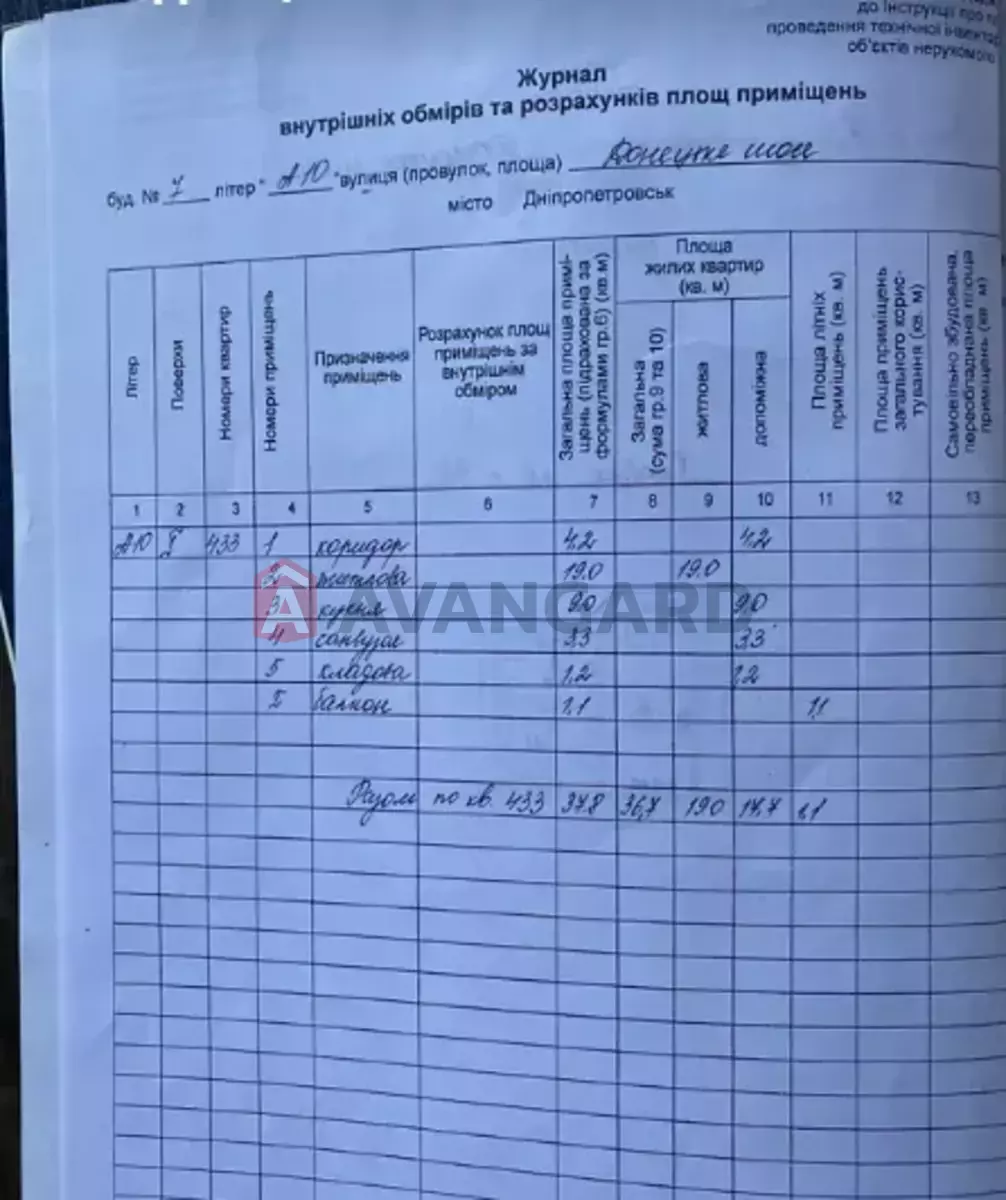 до Інструкції про п
проведення технічної інвентар
об'єктів нерухомого
Журнал
внутрішніх обмірів та розрахунків площ приміщень
буд. № 7 літер " А10 " вулиця (провулок, площа) Донецьке шосе
місто Дніпропетровськ
Літер
Поверхи
Номери квартир
Номери приміщень
Призначення приміщень
Розрахунок площ приміщень за внутрішнім обміром
Загальна площа приміщень (підрахована за формулами гр.6) (кв.м)
Площа жилих квартир (кв. м)
Загальна (сума гр.9 та 10)
житлова
допоміжна
Площа літніх приміщень (кв. м)
Площа приміщень загального користування (кв. м)
Самовільно збудована, переобладнана площа приміщень (кв. м)
1 2 3 4 5 6 7 8 9 10 11 12 13
А10 433 1 коридор 4,2 4,2
2 житлова 19,0 19,0
3 кухня 9,0 9,0
4 санвузол 3,3 3,3
5 кладова 1,2 1,2
I балкон 1,1 1,1
Разом по кв. 433 37,8 36,7 19,0 17,7 1,1
AVANGARD